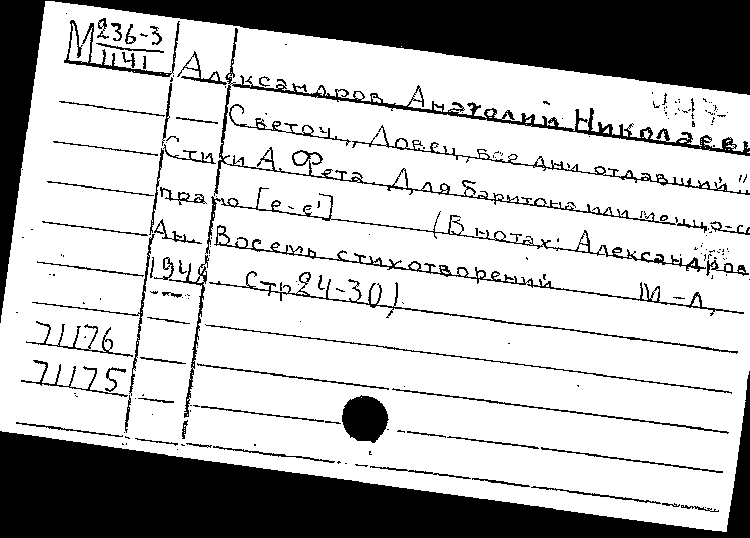 М 236-3
1141
447
Александров, Анатолий Николаеви
Светоч. „Ловец, все дни отдавший"...
Стихи А. Фета. Для баритона или меццо-со
прано [е-е¹] (В нотах: Александров
Ан. Восемь стихотворений М-Л,
1948. Стр 24-30)
71176
71175